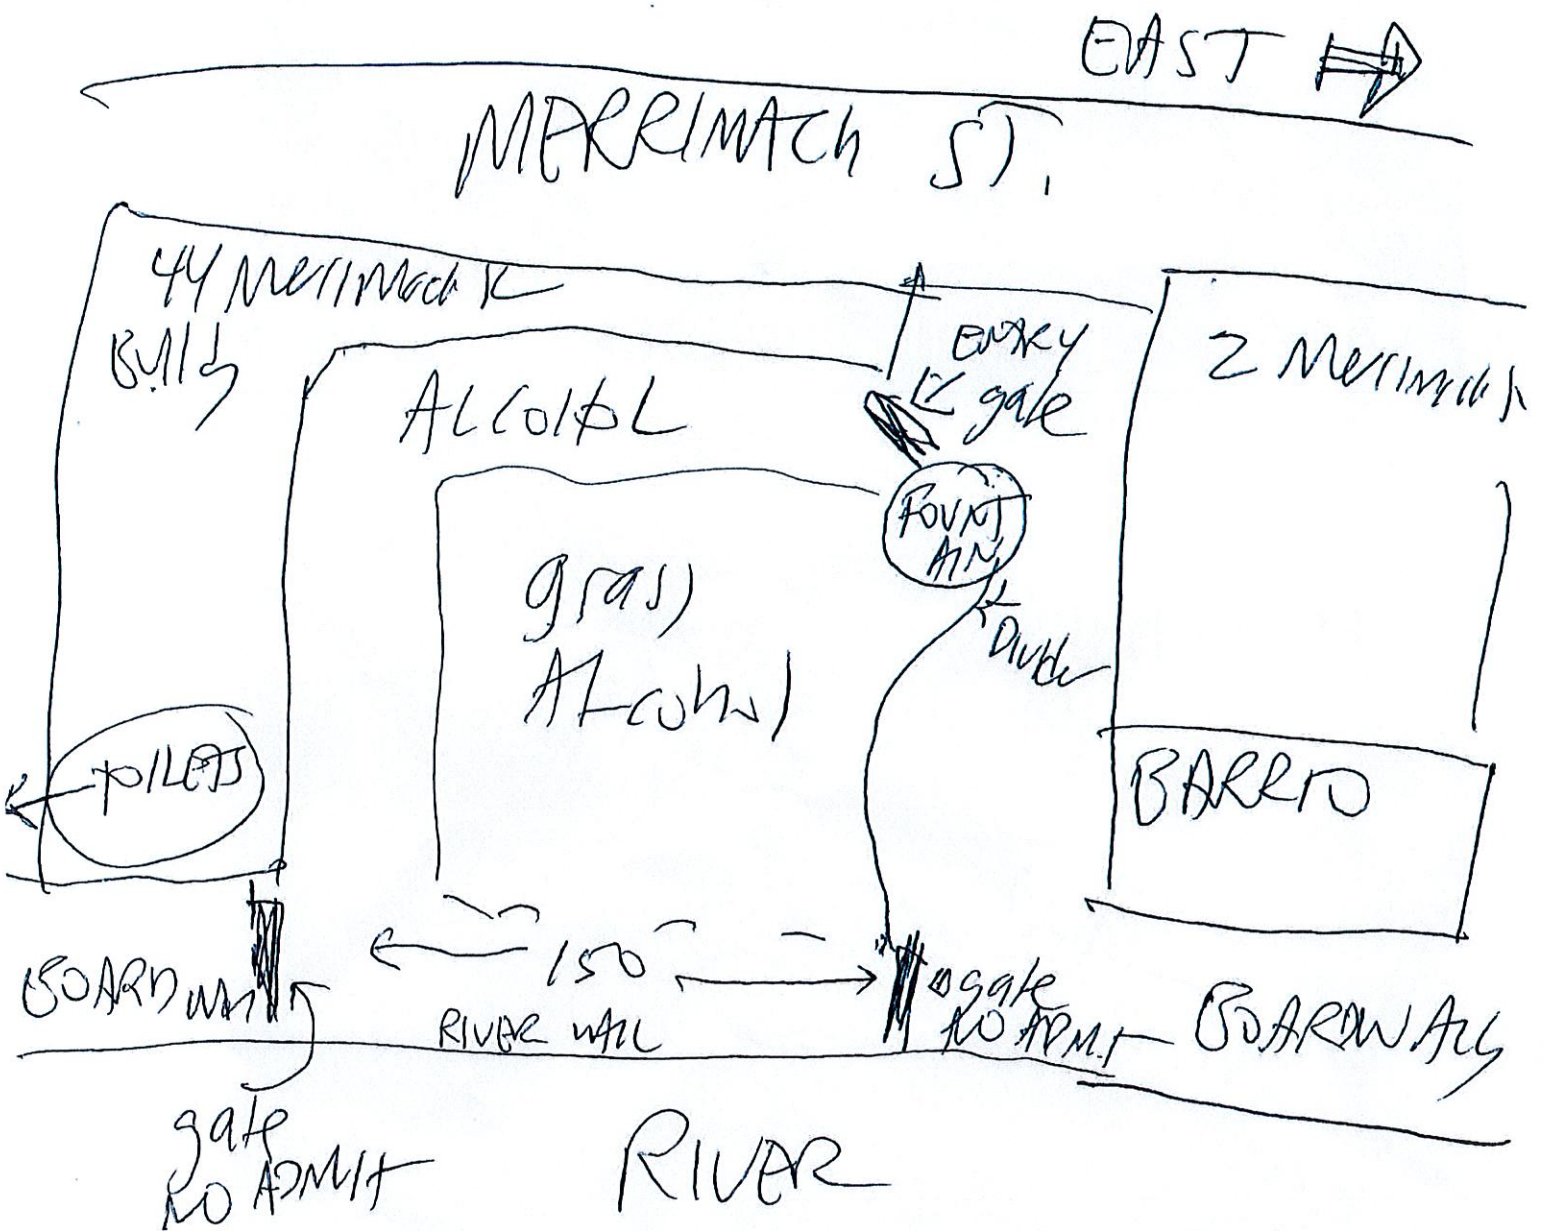 EAST
MERRIMACK ST.
44 Merrimack
Build
2 Merrimack
ENTRY
gate
ALCOHOL
FOUNT
AIN
grass
Alcohol
Divider
TOILETS
BARRIO
150
BOARDWALK
RIVER WALL
gate
NO ADMIT
BOARDWALK
gate
NO ADMIT
RIVER